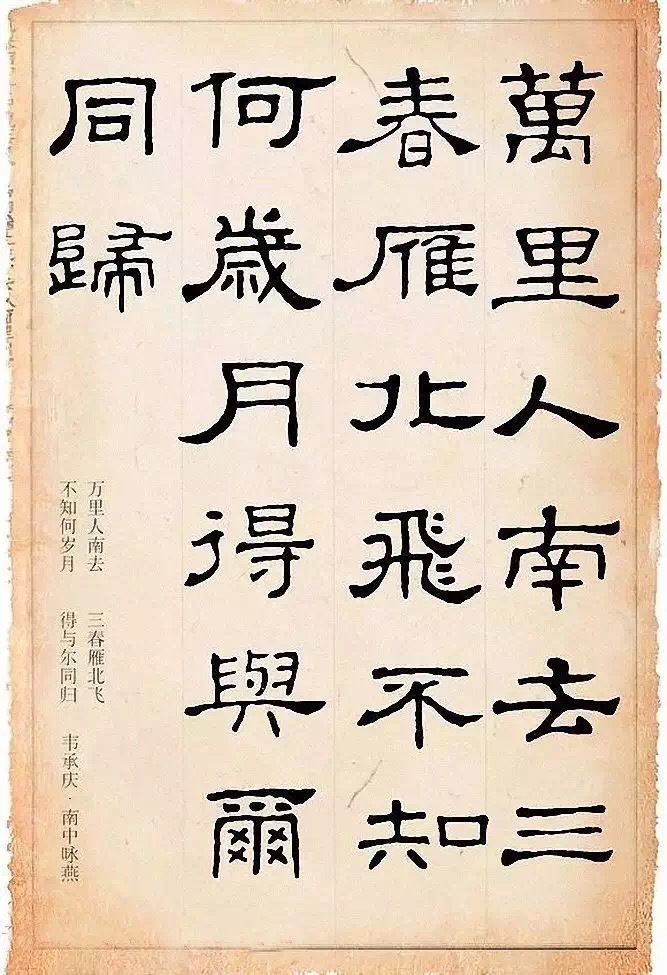 萬里人南去三
春雁北飛不知
何歲月得與爾
同歸
万里人南去 三春雁北飞
不知何岁月 得与尔同归 韦承庆·南中咏燕